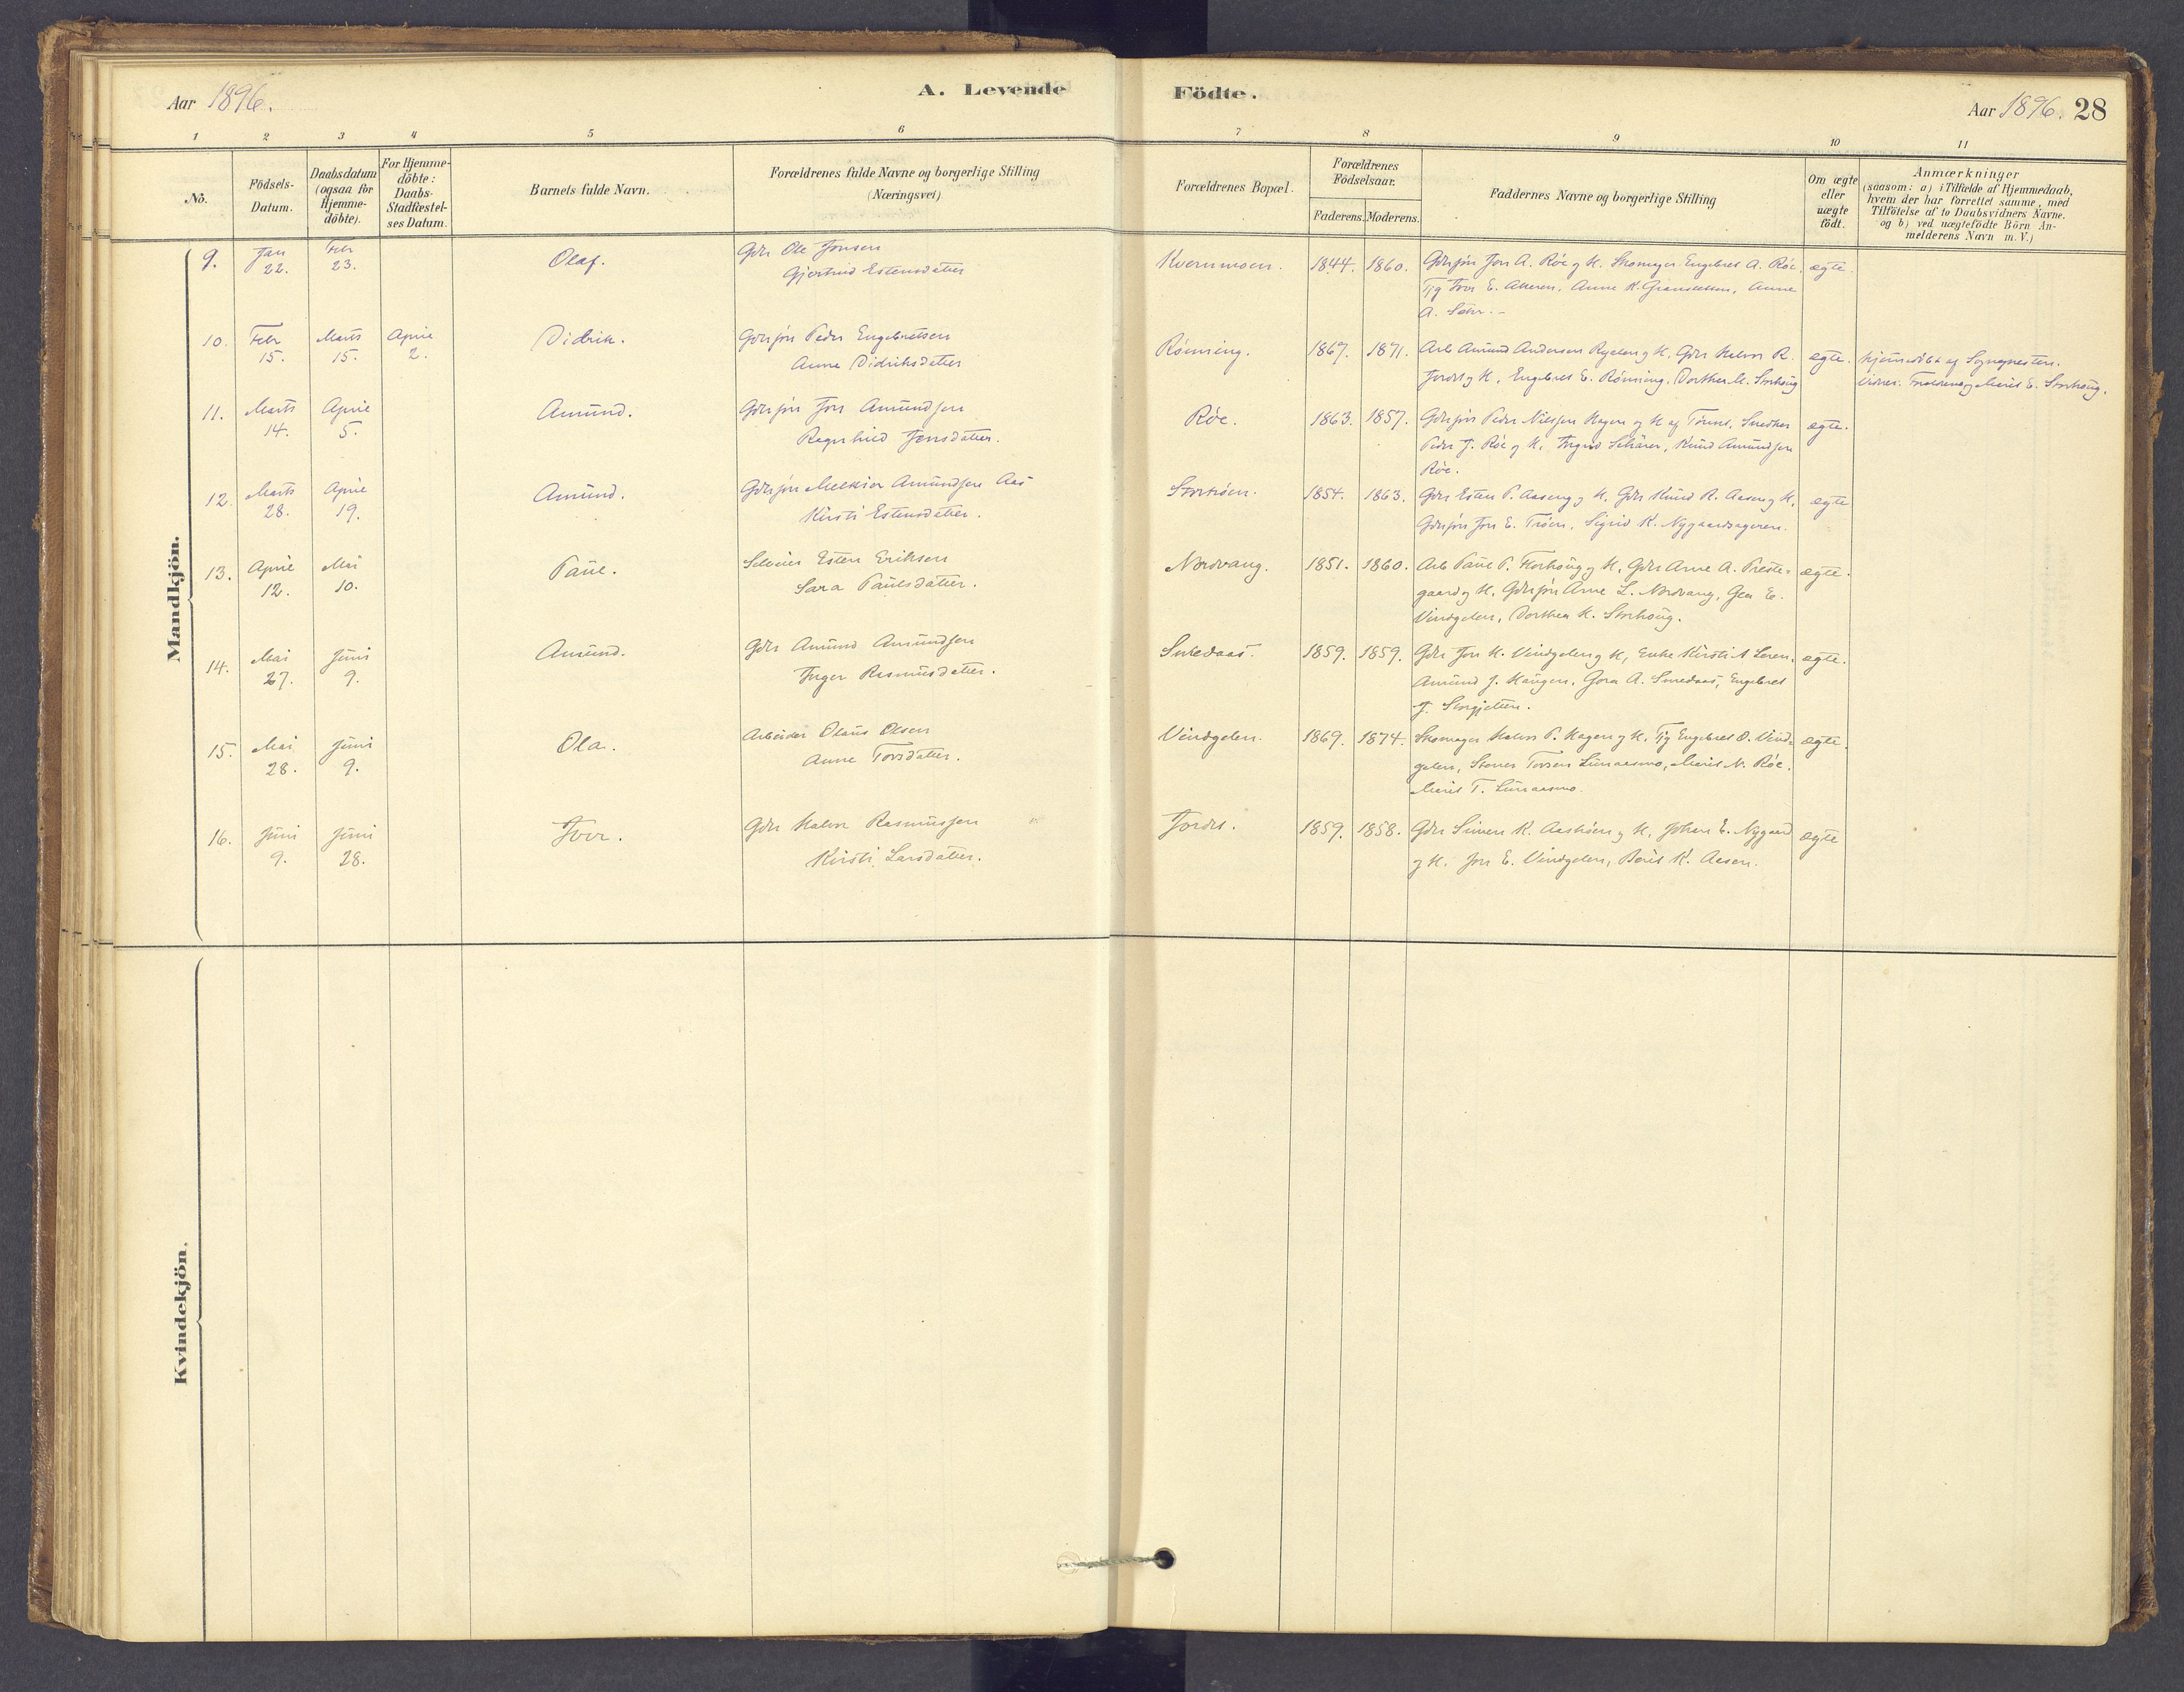 Aar 1896.
A. Levende Födte.
Aar 1896. 28
1 2 3 4 5 6 7 8 9 10 11
No.
Födsels-Datum.
Daabsdatum (ogsaa for Hjemme-döbte).
For Hjemme-döbte: Daabs-Stadfæstel-ses Datum.
Barnets fulde Navn.
Forældrenes fulde Navne og borgerlige Stilling
(Næringsvei)
Forældrenes Bopæl.
Forældrenes Födselsaar.
Faderens. Moderens.
Faddernes Navne og borgerlige Stilling
Om ægte eller uægte födt.
Anmærkninger
(saasom: a) i Tilfælde af Hjemmedaab,
hvem der har forrettet samme, med
Tilföielse af to Daabsvidners Navne.
og b) ved uægtefödte Börn An-
melderens Navn m. V.)
Mandkjön.
9. Jan 22. Febr 23. Olaf. Gdr Ole Jonsen Kvernmoen. 1844. 1860. Jon A. Röe g H. Skomager Engebret A. Röe, ægte.
Gjertrud Estensdatter
Anne
A.
10. Febr 15. Marts 15. April 2. Didrik. Gdrsjön Peder Engebretsen Rönning. 1867. 1871. Arb Amund Andersen g H, Gdr Halvor R. ægte. hjemmedöbt af Sognepresten.
Anne Didriksdatter
Jordet g H, Engebret E. Rönning, Dorthea M. Storhoug
Marit E. Storhoug.
11. Marts 14. April 5. Amund. Gdrsjön Jon Amundsen Röe. 1863. 1857. Gdrsjön Peder Nilssen Hagen og H af Tönset, Snedker ægte.
Ragnhild Jonsdatter.
Peder J. Röe g H, Knud Amundsen
Röe.
12. Marts 28. April 19. Amund. Gdrsjön Melkior Amundsen Aas 1854. 1863. Gdr Esten P. Aaseng g H, Gdr Knud R. Aasen g H, ægte
Kirsti Estensdatter.
Gdrsjön Jon E. Tröen, Sigrid K. Nygaardsageren.
13. April 12. Mai 10. Paul. Selveier Esten Eriksen Nordvang. 1851. 1860. Arb Paul P. g H, Gdr Arne A. Preste- ægte.
Sara Paulsdatter.
gaard g H, Gdrsjön Arne L. Nordvang, E.
Vindgelen, Dorthea K. Storhoug.
14. Mai 27. Juni 9. Amund. Gdr Amund Amundsen Smedaas. 1859. 1859. Gdr Jon H. Vindgelen g H, Enke Kirsti ægte.
Inger Rasmusdatter.
Amund J. Haugen, Gora A. Smedaas, Engebret
J.
15. Mai 28. Juni 9. Ola. Arbeider Olaus Olsen Vindgelen. 1869. 1874. Skomager Halvor P. Hagen g H. Tjg Engebret O. Vind- ægte.
Anne Torsdatter.
gelen, Torsen Lunaasmo, Marit N. Röe,
Marit T. Lunaasmo.
16. Juni 9. Juni 28. Ivar. Gdr Halvor Rasmussen Jordet. 1859. 1858. Gdr Simen K. Aashöen g H, Johan E. Nygaard ægte
Kirsti Larsdatter.
g H. Jon E. Vindgelen, Berit K. Aasen.
Kvindekjön.